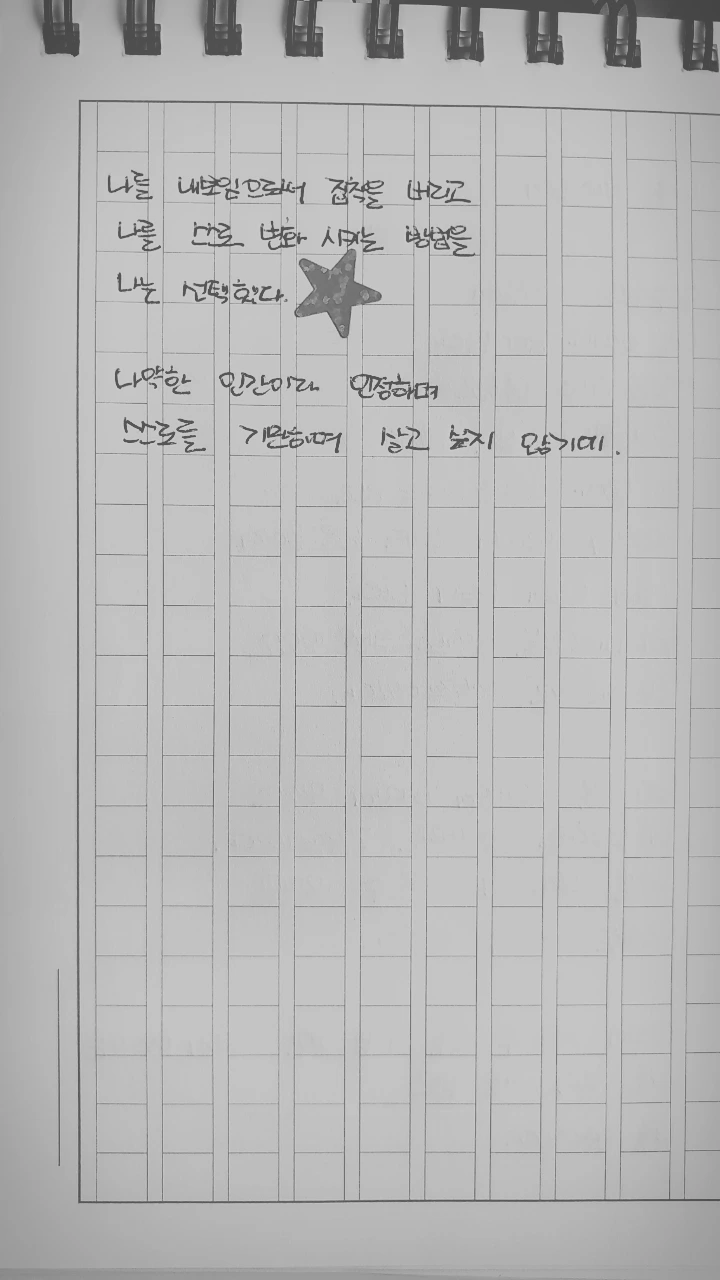 나를 내보임으로써 집착을 버리고
나를 스스로 변화 시키는 방법을
나는 선택했다.
나약한 인간이라 인정하며
스스로를 기만하며 살고 싶지 않기에.